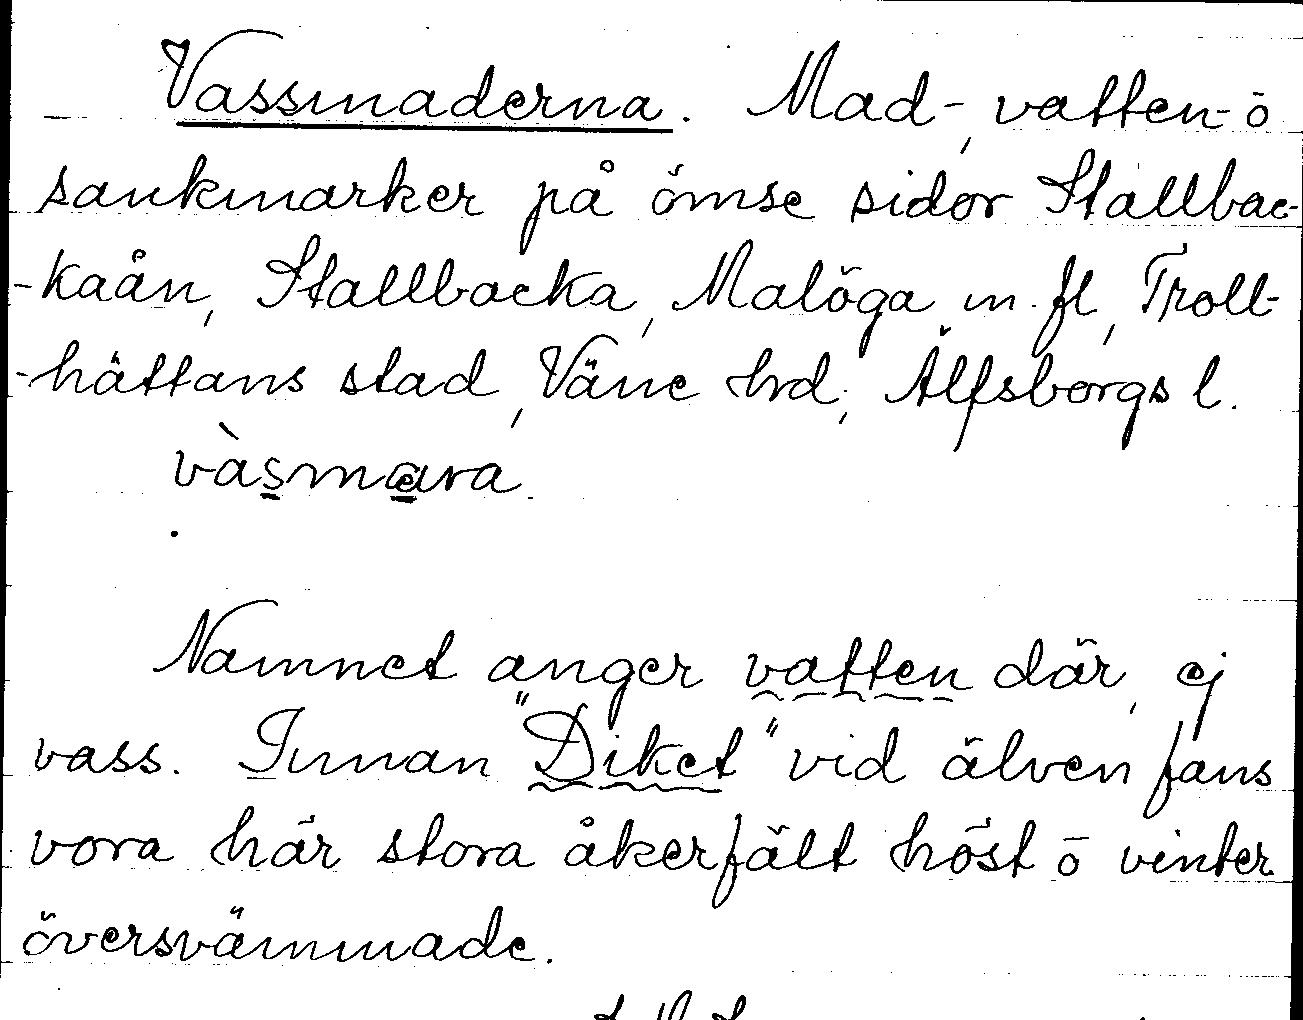 Vassmaderna. Mad-, vatten- ō
sankmarker på ömse sidor Stallbac-
-kaån, Stallbacka, Malöga m. fl, Troll-
-hättans stad, Väne hrd, Älfsborgs l.
vàsmara.
Namnet anger vatten där, ej
vass. Innan "Diket" vid älven fans
vora här stora åkerfält höst ō vinter
översvämmade.